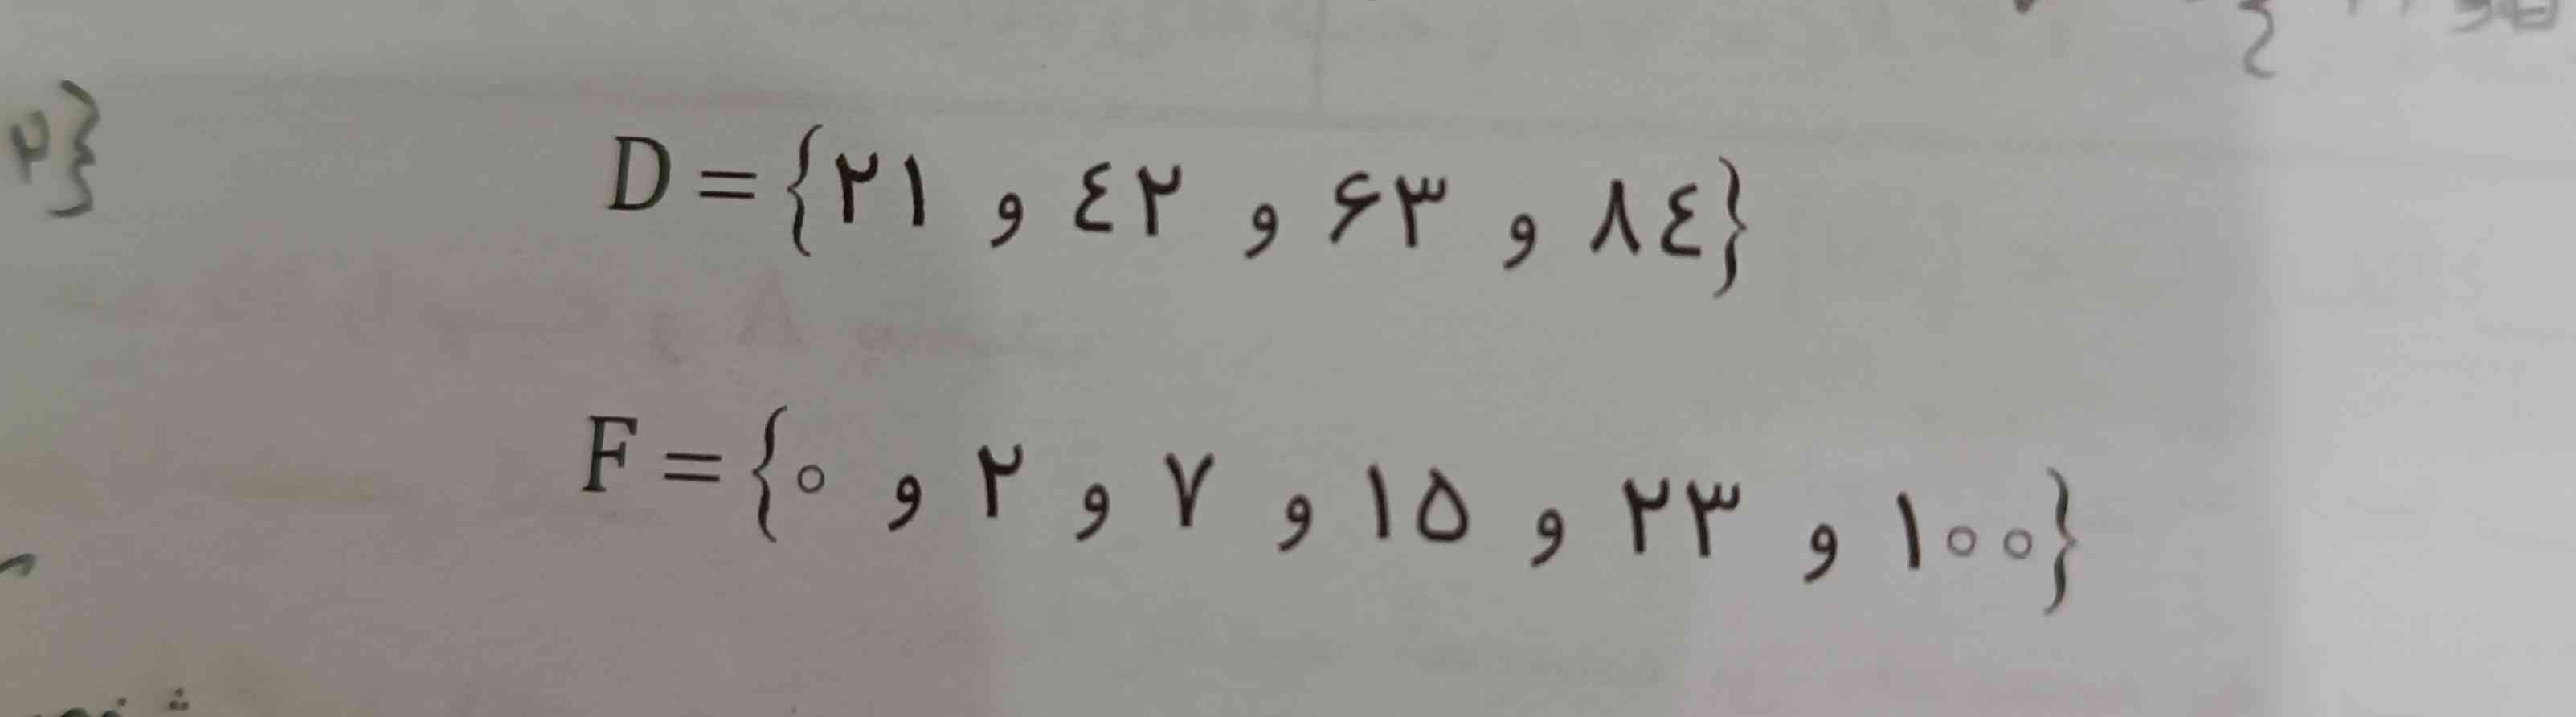 D = {۲۱ و ٤۲ و ۶۳ و ۸٤}
F = {۰ و ۲ و ۷ و ۱۵ و ۲۳ و ۱۰۰}